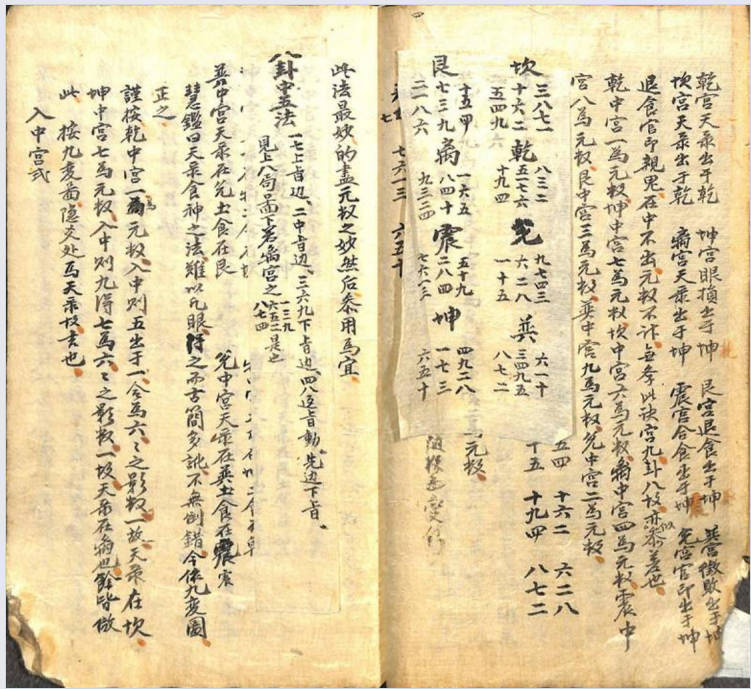 乾宮天彔出于乾 坤宮眼損出于坤 艮宮退食出于坤 巽宮徵敗出于坤
坎宮天彔出于乾 离宮天彔出于坤 震宮合食出于坤 兌宮官印出于坤
退食官印親鬼在中不出元杈不計 此訣宮九卦八故亦參差也
乾中宮一為元杈坤中宮七為元杈坎中宮六為元杈离中宮四為元杈震中
宮八為元杈艮中宮三為元杈巽中宮九為元杈兌中宮二為元杈
坎 三八七一 十六二 五四九
乾 八三二 五七六 十九四
兌 九七四三 六二八 一十五
巽 六一十 三四九五 八七二
艮 十五四 七三九 二一八六
离 一六五 八四十 九三二四
震 五十九 二八四 七六一三
坤 四九二八 一七三 六五十
元杈
五四 十六二 六二八
十五 十九四 八七二
七六一三 六五十
此法最妙的盡元杈之妙然后叅用為宜
八卦中五法 一七上旨边、二中旨边、三六九下旨边、四八逆旨動、先边下旨。
見上八局畐下若离宮之 一三九 六五二 八七四 是也
巽中宮天彔在兌土食在艮 兌中宮天彔在巽土食在震
慧鑑曰天彔食神之法难以凡眼得之而古簡多訛不無倒錯今依九変圖
正之
謹按乾中宮一為元杈入中則五出于一合為六六之影杈一故天彔在坎
坤中宮七為元杈入中則九得七為六六之影杈一故天彔在离也餘皆倣
此 按九変啚隐爻处為天彔故玄也
入中宮式